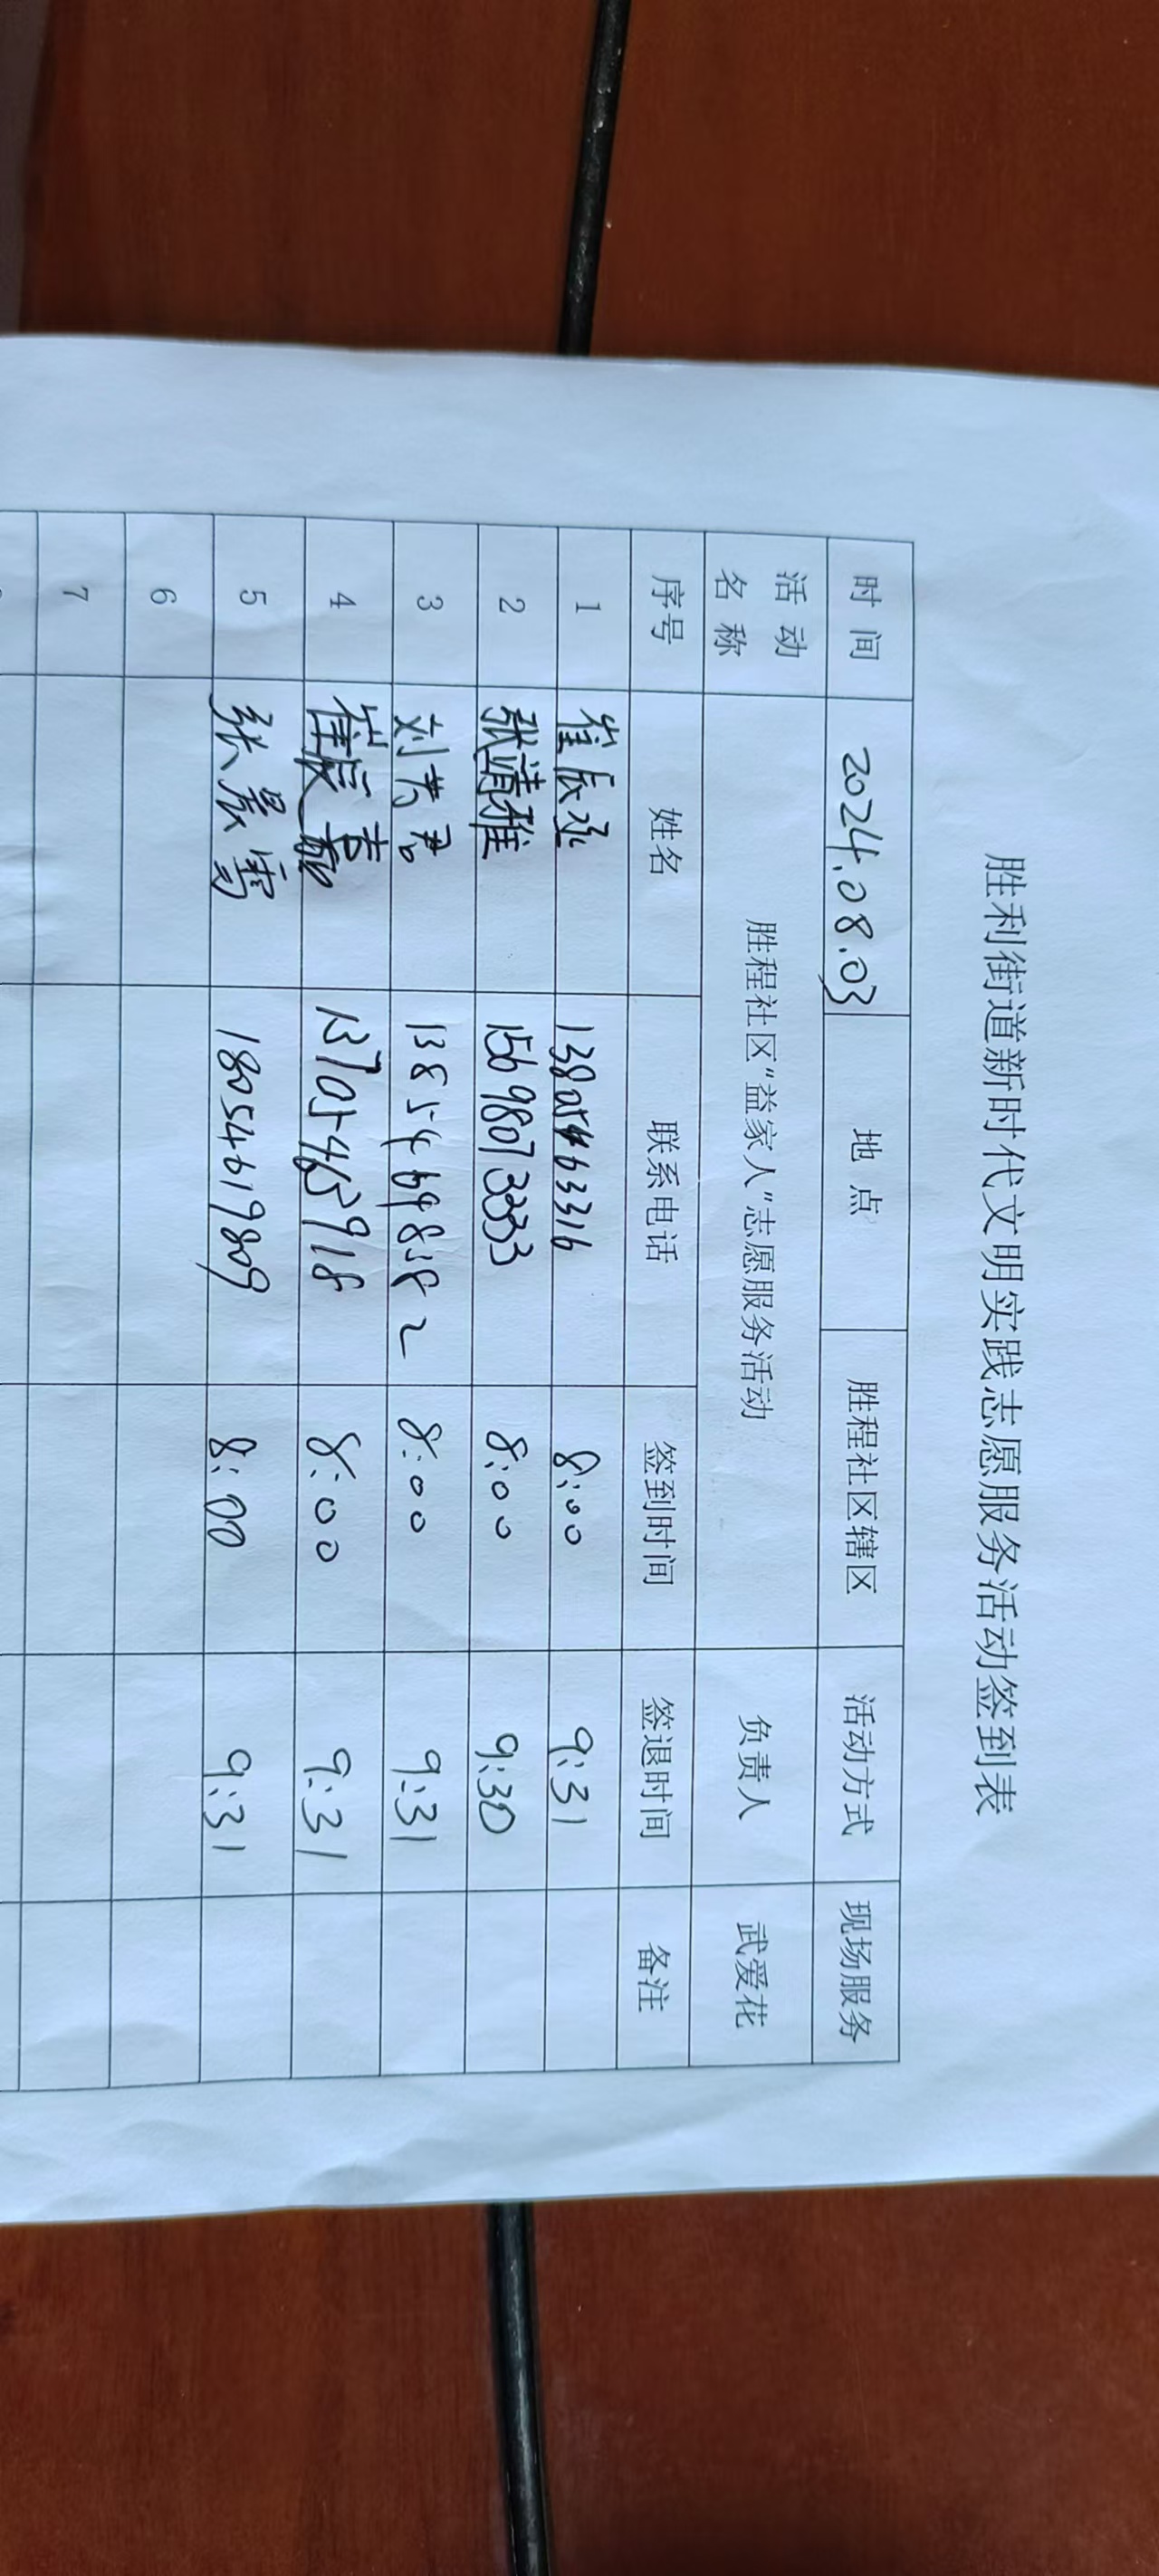 胜利街道新时代文明实践志愿服务活动签到表
时 间 2024.08.03 地 点 胜程社区辖区 活动方式 现场服务
活 动 名 称 胜程社区“益家人”志愿服务活动 负责人 武爱花
序号 姓名 联系电话 签到时间 签退时间 备注
1 崔辰丞 13805463316 8:00 9:31
2 张靖雅 15698073333 8:00 9:30
3 刘 君 8:00 9:31
4 崔辰嘉 13705465918 8:00 9:31
5 张晨 18054619809 8:00 9:31
6
7